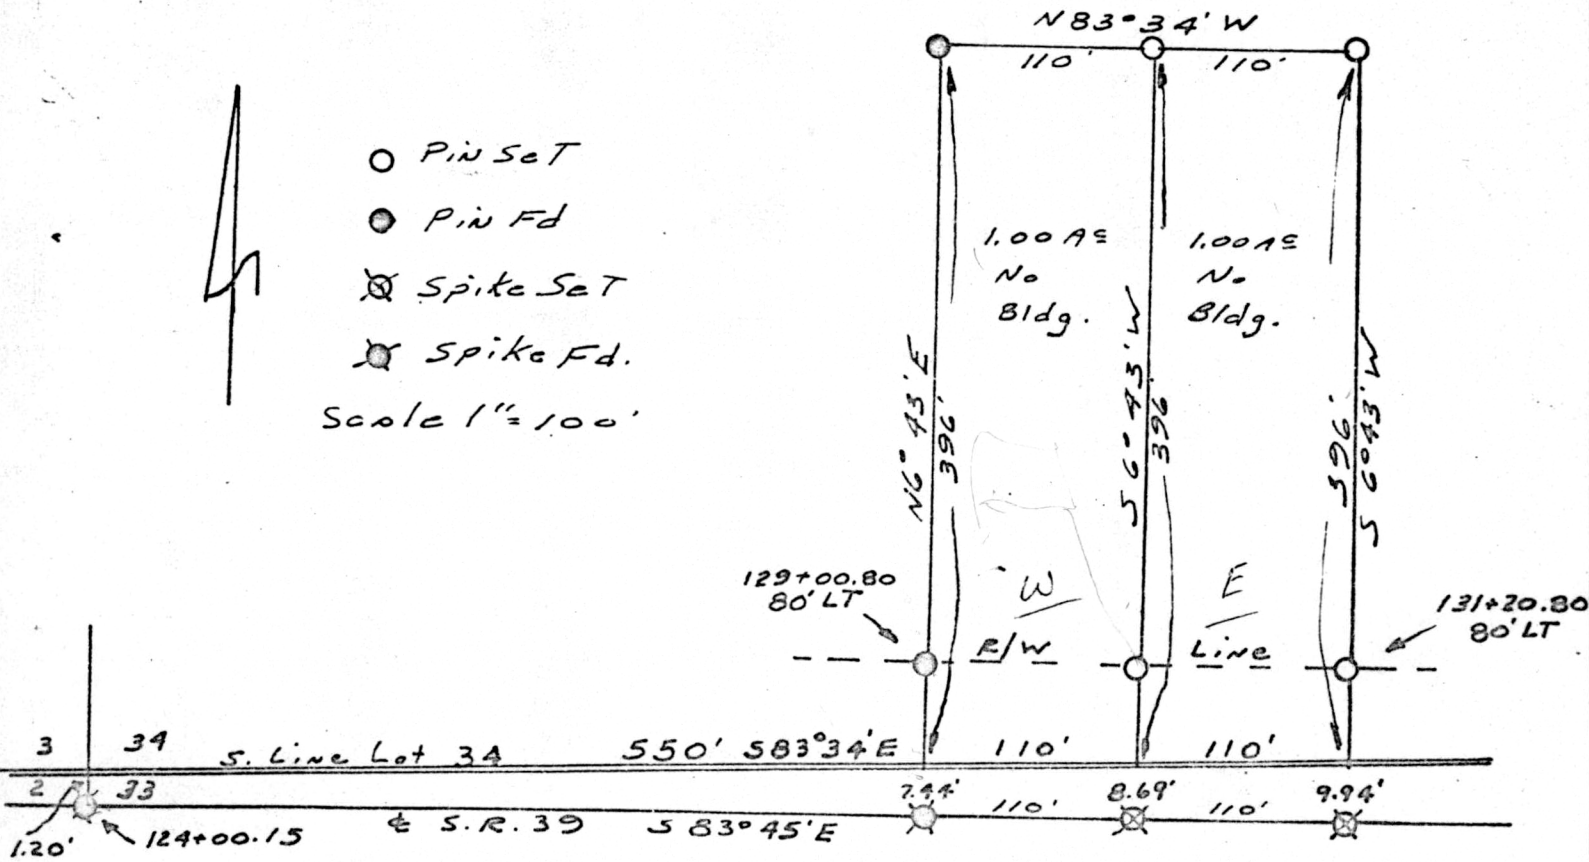 N 83° 34' W
110'
110'
Pin Set
Pin Fd
Spike Set
Spike Fd.
Scale 1"= 100'
1.00 Ac
No
Bldg.
1.00 Ac
No
Bldg.
N 6° 43' E
396'
S 6° 43' W
396'
396'
S 6° 43' W
129+00.80
80' LT
W
E
131+20.80
80' LT
R/W
Line
3
34
S. Line Lot 34
550' S 83° 34' E
110'
110'
2
33
7.44'
8.69'
9.94'
1.20'
124+00.15
℄ S.R. 39
S 83° 45' E
110'
110'